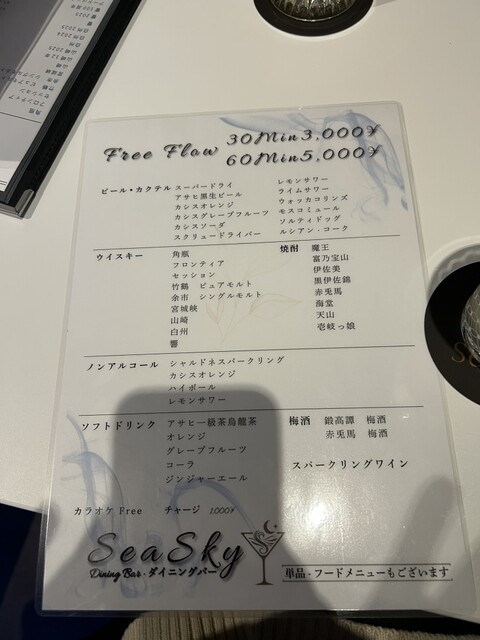 Free Flow 30Min3,000¥
60Min5,000¥
ビール・カクテル スーパードライ
アサヒ黒生ビール
カシスオレンジ
カシスグレープフルーツ
カシスソーダ
スクリュードライバー
レモンサワー
ライムサワー
ウォッカコリンズ
モスコミュール
ソルティドッグ
ルシアン・コーク
ウイスキー 角瓶
フロンティア
セッション
竹鶴 ピュアモルト
余市 シングルモルト
宮城峡
山崎
白州
響
焼酎 魔王
富乃宝山
伊佐美
黒伊佐錦
赤兎馬
海堂
天山
壱岐っ娘
ノンアルコール シャルドネスパークリング
カシスオレンジ
ハイボール
レモンサワー
ソフトドリンク アサヒ一級茶烏龍茶
オレンジ
グレープフルーツ
コーラ
ジンジャーエール
梅酒 鍛高譚 梅酒
赤兎馬 梅酒
スパークリングワイン
カラオケ Free チャージ 1,000¥
SeaSky
Dining Bar・ダイニングバー
単品・フードメニューもございます